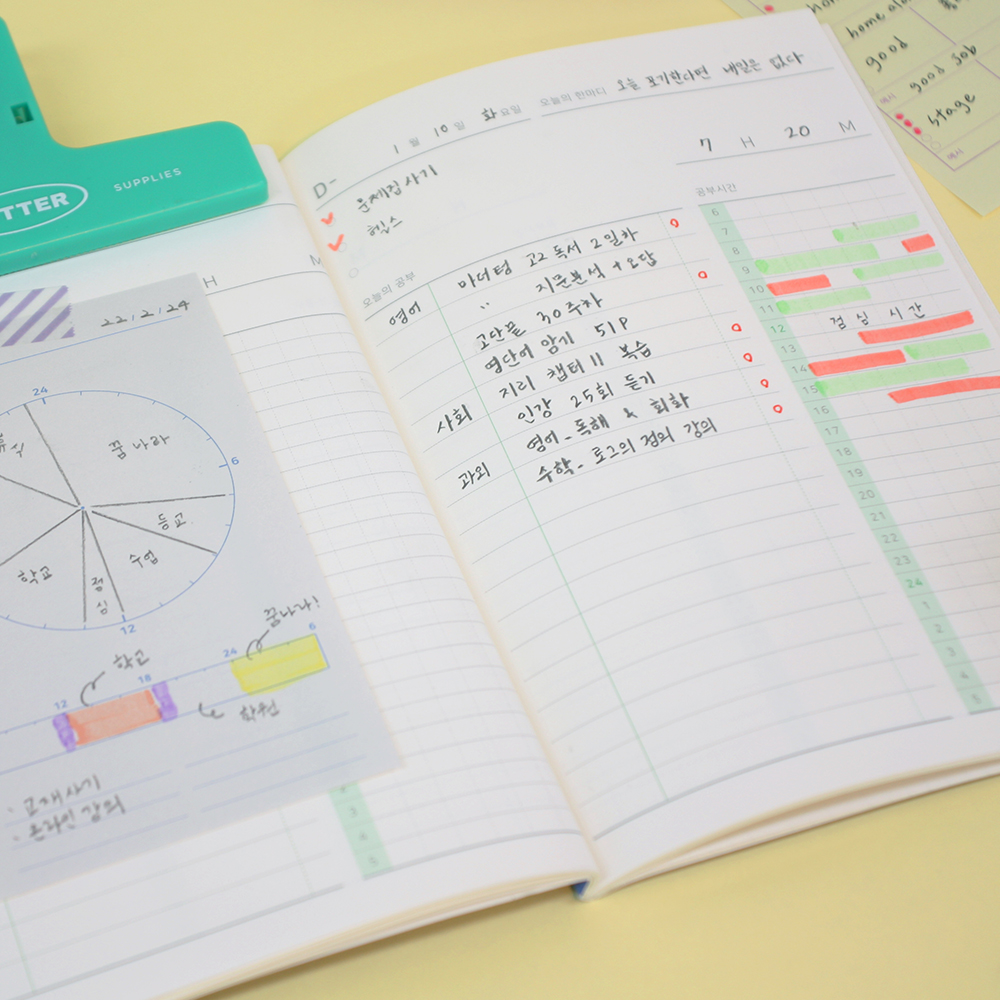 TTER
SUPPLIES
H M
22/2/24
24
꿈나라
6
등교
수업
점심
학교
12
학교
꿈나라!
12 18 24 6
학원
· 교재사기
· 온라인 강의
3
4
5
1 월 10 일 화요일
오늘의 한마디 오늘 포기한다면 내일은 없다
D-
7 H 20 M
문제집 사기
헬스
오늘의 공부
영어 마더텅 고2 독서 2일차
" 지문분석 + 오답
고단끝 30주차
영단어 암기 51P
사회 지리 챕터 11 복습
인강 25회 듣기
과외 영어 - 독해 & 회화
수학 - 로그의 정의 강의
공부시간
6
7
8
9
10
11
12 점심시간
13
14
15
16
17
18
19
20
21
22
23
24
1
2
3
4
5
home alone
good
good job
예시
stage
예시